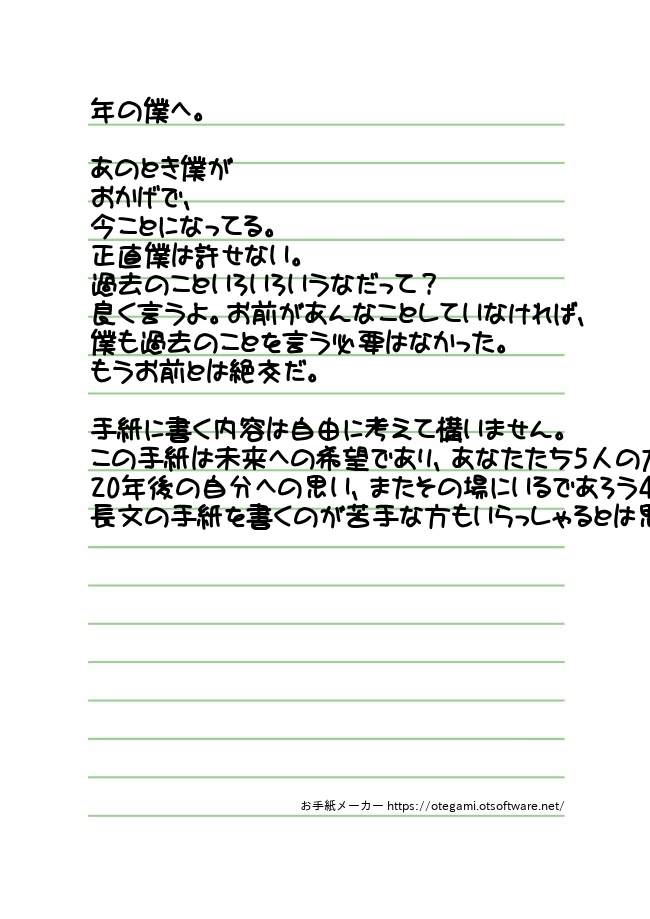 年の僕へ。
あのとき僕が
おかげで、
今ことになってる。
正直僕は許せない。
過去のこといろいろいうなだって？
良く言うよ。お前があんなことしていなければ、
僕も過去のことを言う必要はなかった。
もうお前とは絶交だ。
手紙に書く内容は自由に考えて構いません。
この手紙は未来への希望であり、あなたたち5人の
20年後の自分への思い、またその場にいるであろう4
長文の手紙を書くのが苦手な方もいらっしゃるとは思
お手紙メーカー https://otegami.otsoftware.net/